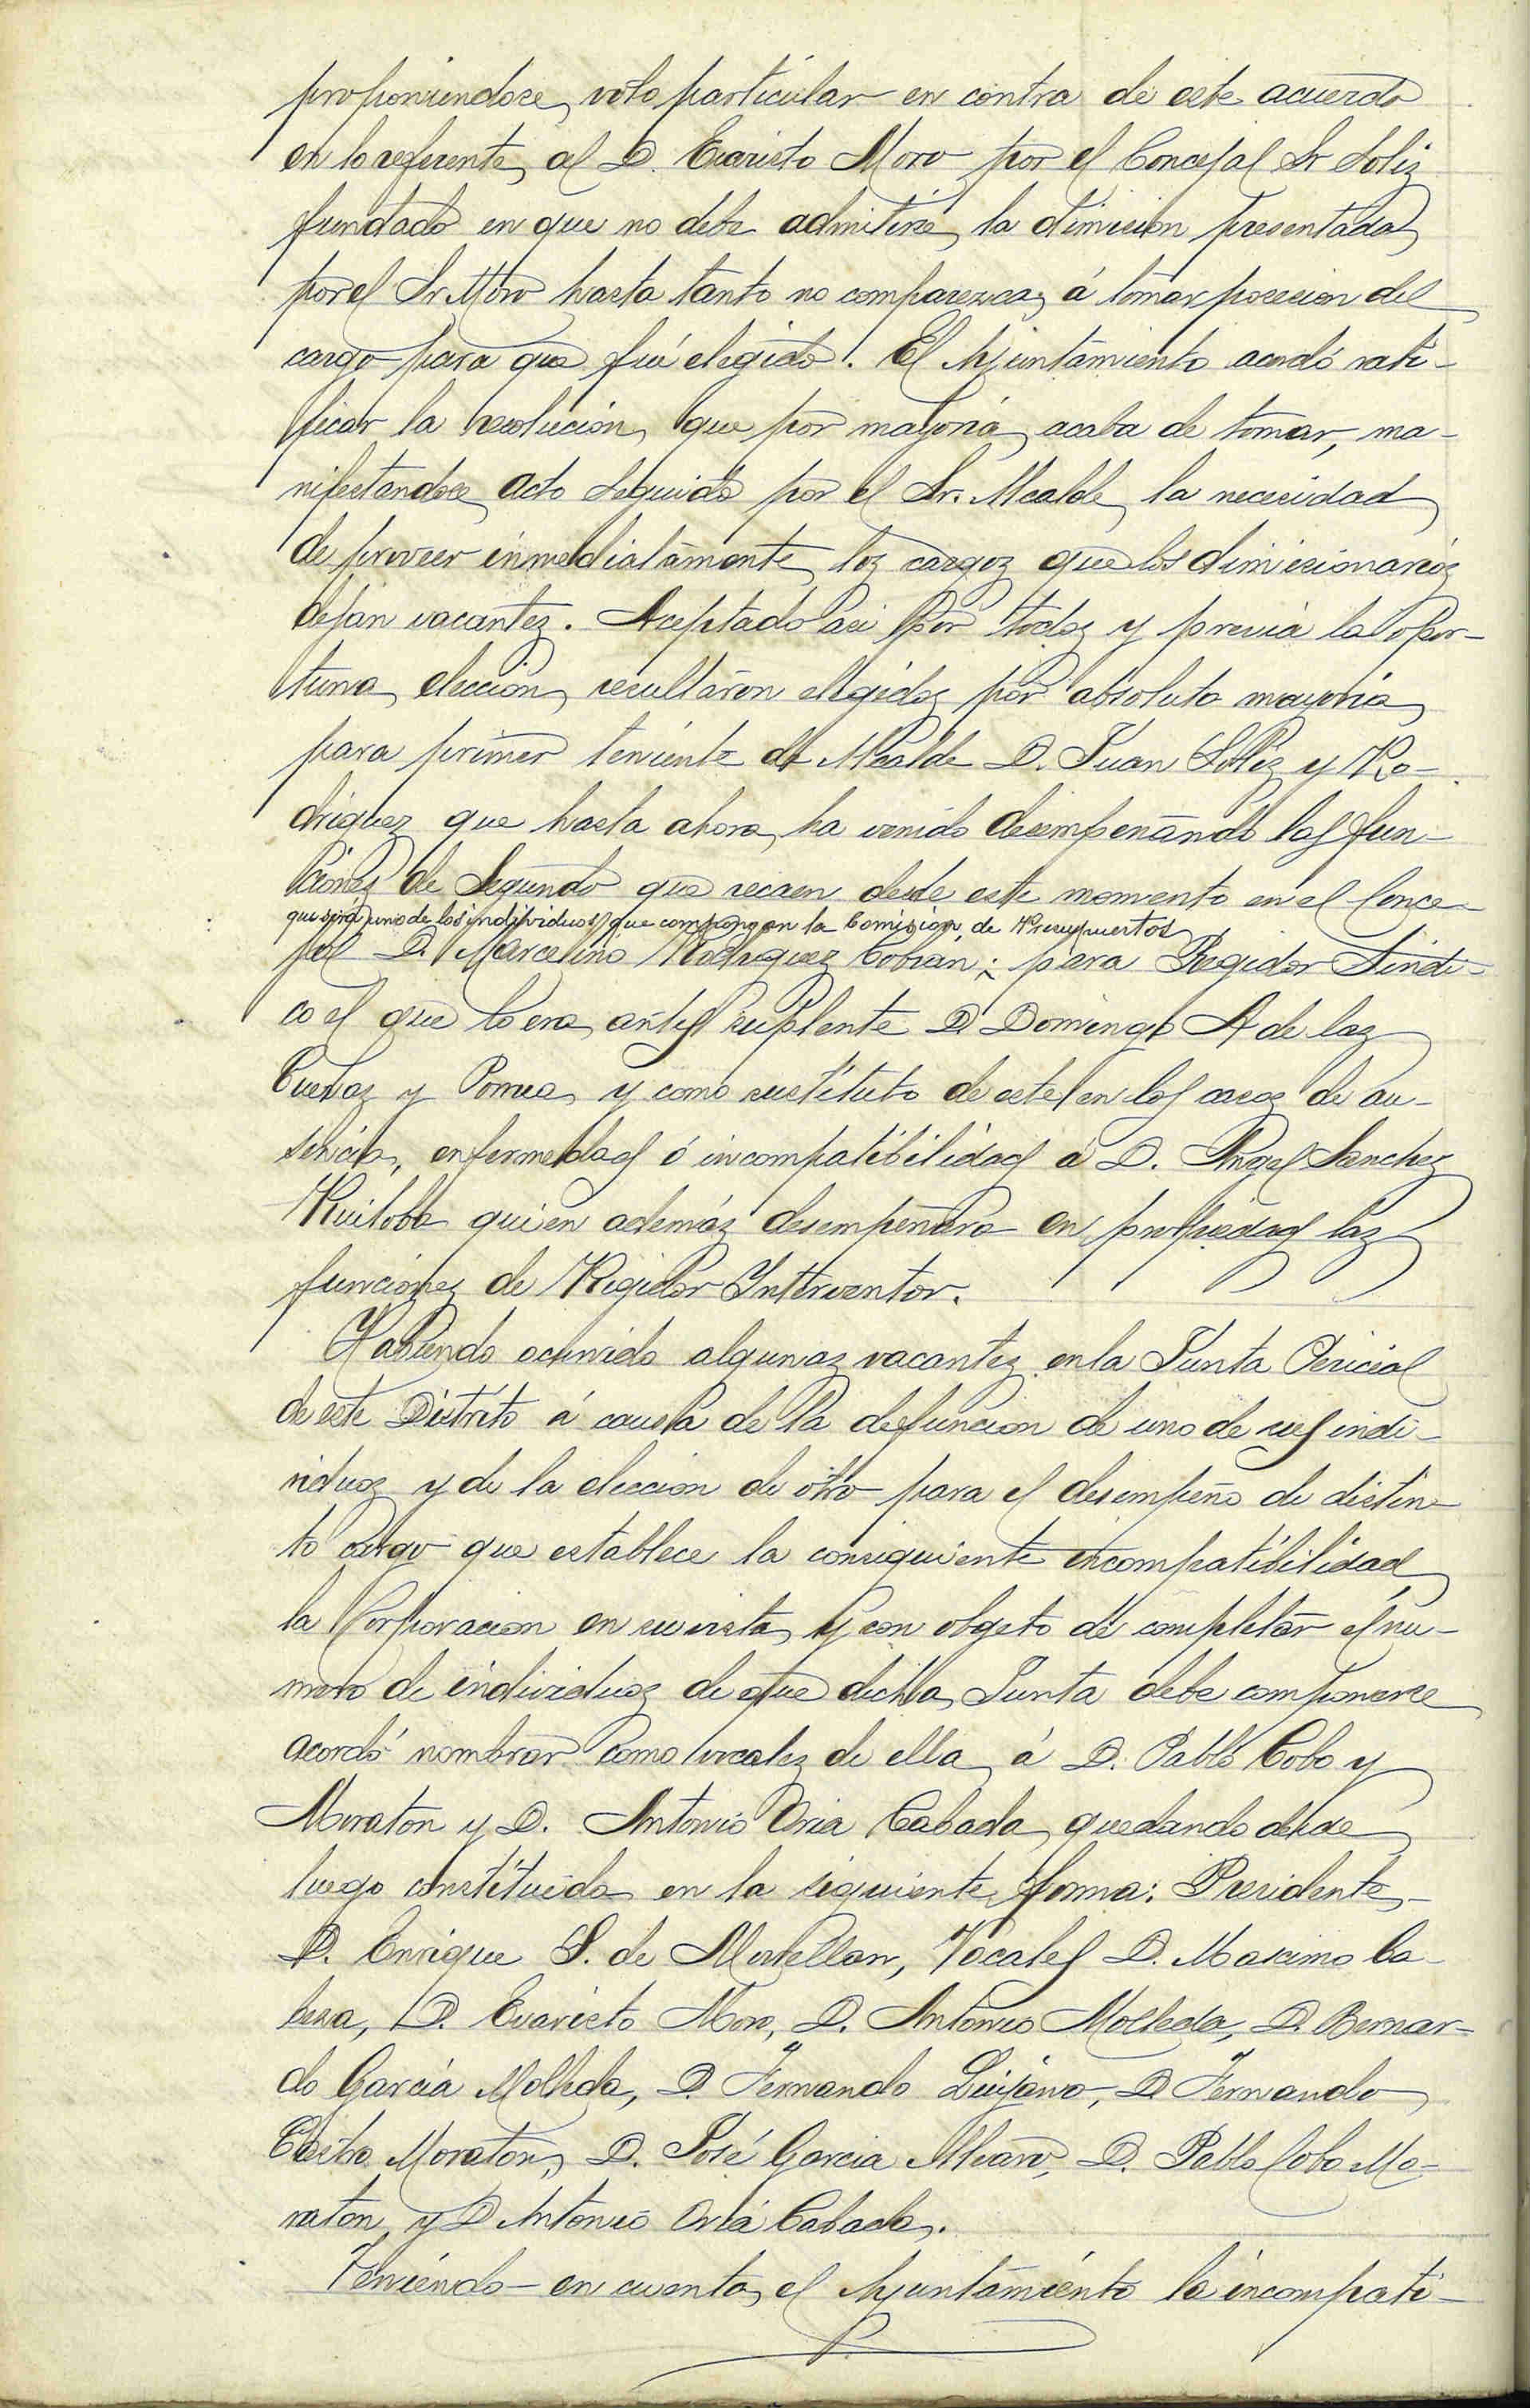 proponiendose voto particular en contra de este acuerdo
en lo referente al D. Evaristo Moro por el Concejal Sr Soliz
fundado en que no debe admitirse la dimision presentada
por el Sr Moro hasta tanto no comparezca á tomar posesion del
cargo para que fué elegido. El Ayuntamiento acordó rati-
ficar la resolucion que por mayoria acaba de tomar, ma-
nifestandose acto seguido por el Sr. Alcalde la necesidad
de proveer inmediatamente los cargos que los dimisionarios
dejan vacantes. Aceptado asi por todos y previa la opor-
tuna eleccion resultaron elegidos por absoluta mayoria
para primer teniente de Alcalde D. Juan Soliz y Ro-
driguez que hasta ahora ha venido desempeñando las fun-
ciones de Segundo que recaen desde este momento en el Conce-
que será uno de los individuos que compongan la Comision de Presupuestos
jal D. Marcelino Rodriguez Cobian; para Regidor Sindi-
co el que lo era antes suplente D. Domingo A de las
Cuevas y Porrua y como sustituto de este en los casos de au-
sencia, enfermedad ó incompatibilidad á D. Angel Sanchez
Ruiloba quien además desempeñara en propiedad las
funciones de Regidor Interventor.
Habiendo ocurrido algunas vacantes en la Junta Pericial
de este Distrito á causa de la defuncion de uno de sus indi-
viduos y de la eleccion de otro para el desempeño de distin-
to cargo que establece la consiguiente incompatibilidad
la Corporacion en su vista y con objeto de completar el nu-
mero de individuos de que dicha Junta debe componerse
acordó nombrar como vocales de ella á D. Pablo Cobo y
Moraton y D. Antonio Oria Cabada quedando desde
luego constituida en la siguiente forma: Presidente
D. Enrique S. de Movellan, Vocales D. Maximo Ca-
beza, D. Evaristo Moro, D. Antonio Molleda, D. Bernar-
do Garcia Molleda, D. Fernando Quijano, D. Fernando
Castro Moraton, D. José Garcia Alvaro, D. Pablo Cobo Mo-
raton y D. Antonio Oria Cabada.
Teniendo en cuenta el Ayuntamiento la incompati-